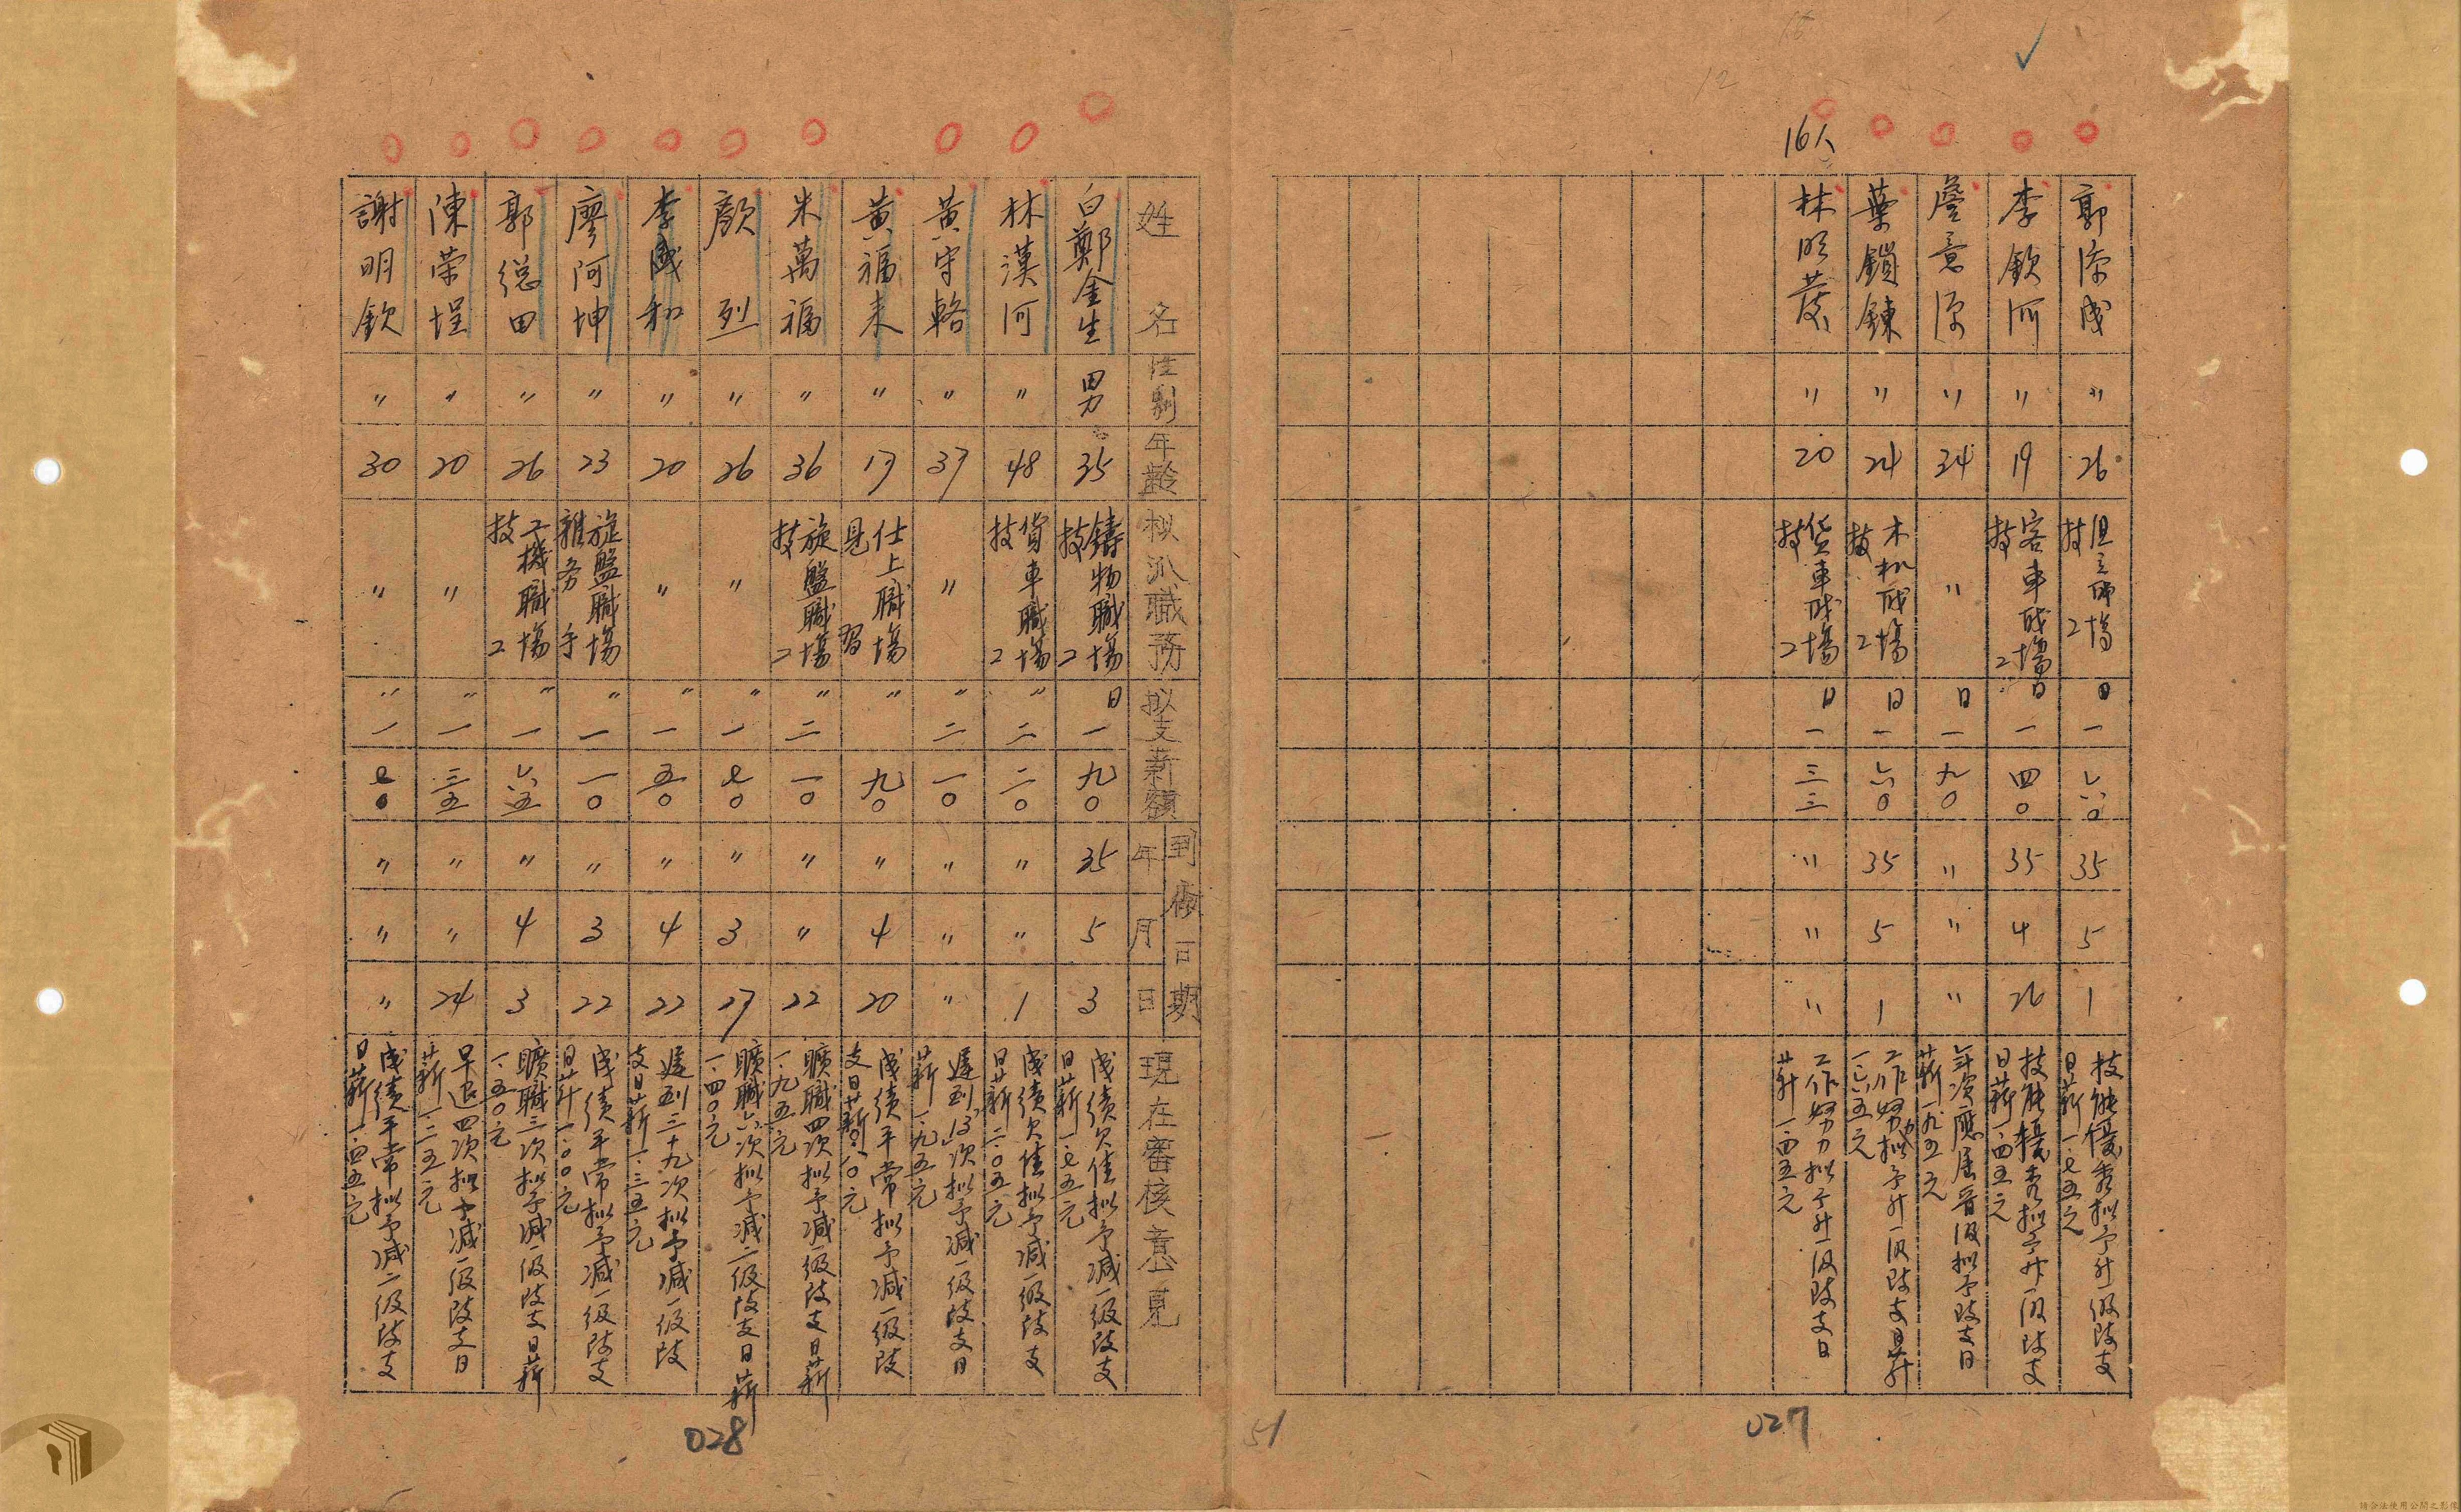 16人
郭添成 〃 26 技工 日 一 六〇 35 5 1 技能優秀拟予升一级改支日薪一.七五元
李欽河 〃 19 客車职場技工 日 一 四〇 35 4 26 技能優秀拟予升一级改支日薪一.四五元
詹意源 〃 34 〃 日 一 九〇 〃 〃 〃 年資應屆晋级拟予改支日薪一.九五元
葉鎖鍊 〃 24 木机职場技工 日 一 六〇 35 5 1 工作努力拟予升一级改支日薪一.六五元
林明茂 〃 20 货車职場技工 日 一 三三 〃 〃 〃 工作努力拟予升一级改支日薪一.四五元
027
51
12
姓名 性別 年齡 拟派職務 拟支薪額 到廠日期 年 月 日 現在審核意見
白鄭金生 男 35 鑄物職場技工 日 一 九〇 35 5 3 成績欠佳拟予減一級改支日薪一.七五元
林漢河 〃 48 貨車職場技工 〃 二 二〇 〃 〃 1 成績欠佳拟予減一級改支日薪二.〇五元
黃守輅 〃 37 〃 〃 二 一〇 〃 〃 〃 遲到13次拟予減一級改支日薪一.九五元
黃福来 〃 17 仕上職場見習 〃 九〇 〃 4 20 成績平常拟予減一級改支日薪〇.八〇元
米萬福 〃 36 旋盤職場技工 〃 二 一〇 〃 〃 22 曠職四次拟予減一級改支日薪一.九五元
顏列 〃 26 〃 〃 一 七〇 〃 3 27 曠職六次拟予減二級改支日薪一.四〇元
李國和 〃 20 〃 〃 一 五〇 〃 4 22 遲到二十九次拟予減一級改支日薪一.三五元
廖阿坤 〃 23 旋盤職場雜务手 〃 一 一〇 〃 3 22 成績平常拟予減一級改支日薪一.〇〇元
郭總田 〃 26 工機職場技工 〃 一 六五 〃 4 3 曠職三次拟予減一級改支日薪一.五〇元
陳荣埕 〃 20 〃 〃 一 三五 〃 〃 24 早退四次拟予減一級改支日薪一.二五元
謝明欽 〃 30 〃 〃 一 七〇 〃 〃 〃 成績平常拟予減二級改支日薪一.四五元
028
請合法使用公開之影像